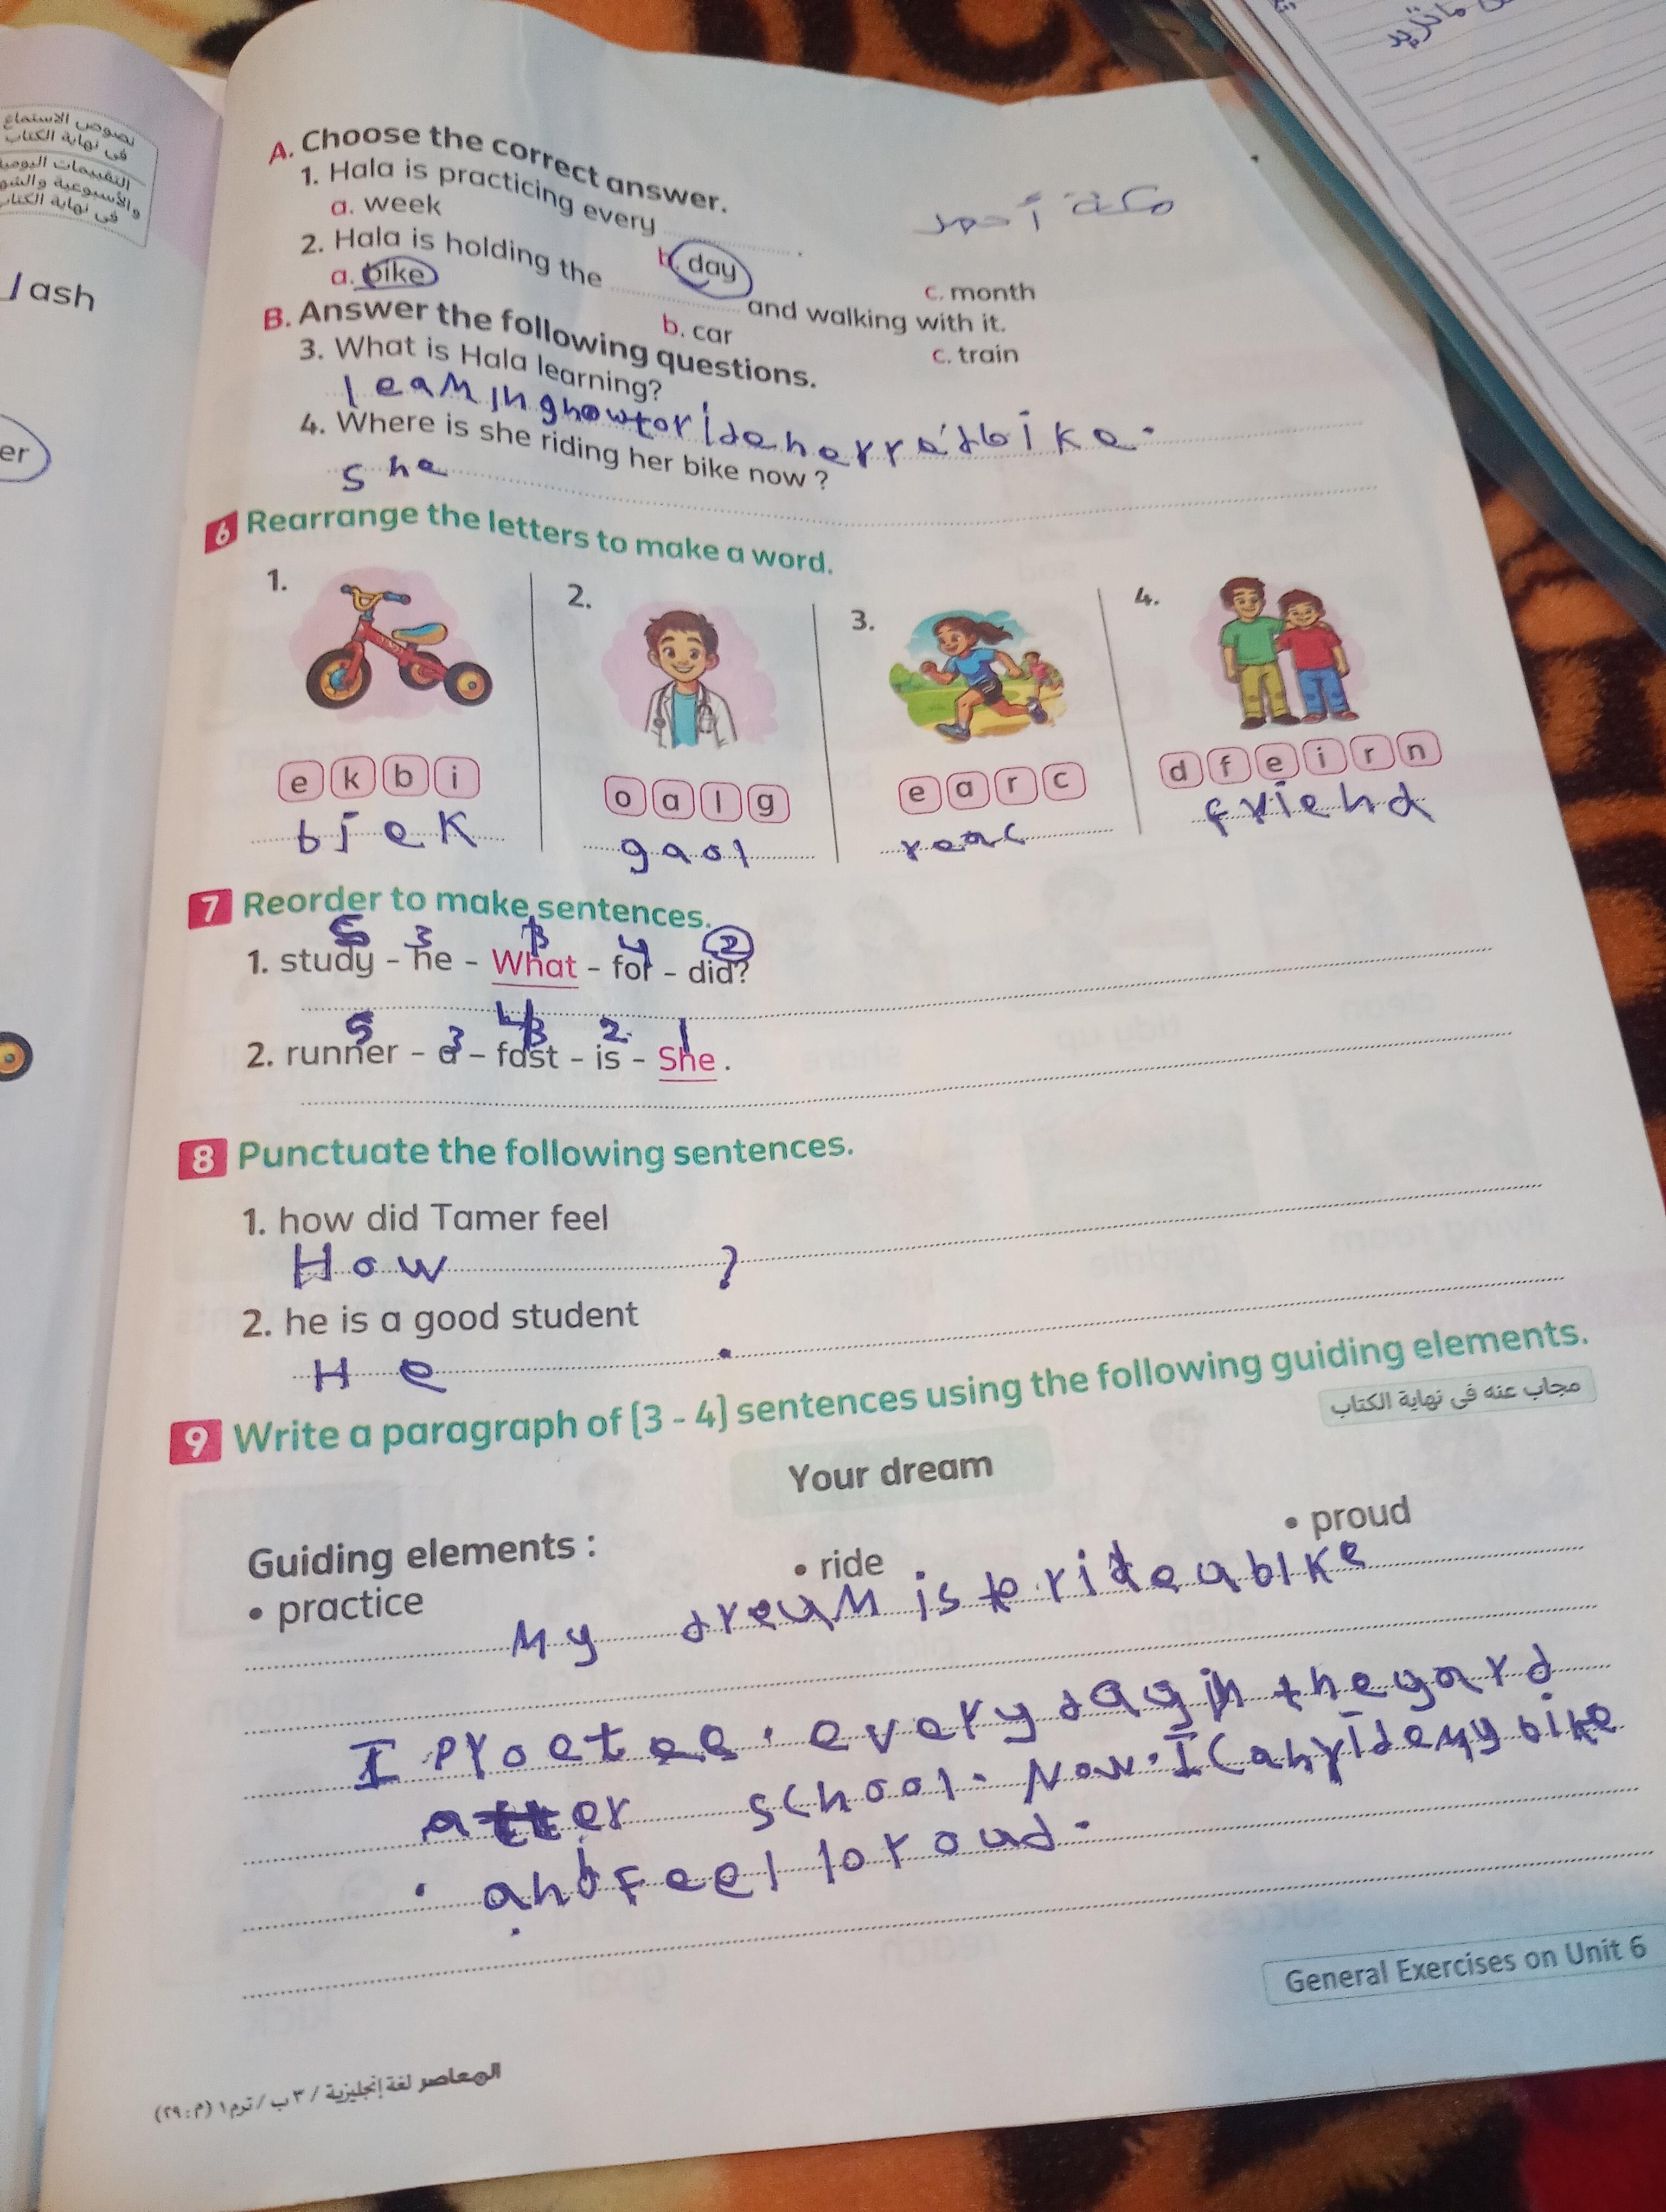 نصوص الاستماع
فى نهاية الكتاب
التقييمات اليومية
فى نهاية الكتاب
ash
er
A. Choose the correct answer.
1. Hala is practicing every ............ .
a. week b. day c. month
2. Hala is holding the ............ and walking with it.
a. bike b. car c. train
B. Answer the following questions.
3. What is Hala learning?
learning how to ride her red bike.
4. Where is she riding her bike now ?
She
6 Rearrange the letters to make a word.
1. 2. 3. 4.
e k b i
o a l g
e a r c
d f e i r n
biek
gaol
reac
friend
7 Reorder to make sentences.
5 3 4 2
1. study - he - What - for - did?
5 3 4 2 1
2. runner - a - fast - is - She .
8 Punctuate the following sentences.
1. how did Tamer feel
How ?
2. he is a good student
He .
9 Write a paragraph of (3 - 4) sentences using the following guiding elements.
مجاب عنه فى نهاية الكتاب
Your dream
Guiding elements :
• practice • ride • proud
My dream is to ride a bike
I every day in the yard
after school. Now. I can ride my bike
. and feel
General Exercises on Unit 6
المعاصر لغة إنجليزية / ٣ ب / ترم ١ (م : ٢٩)